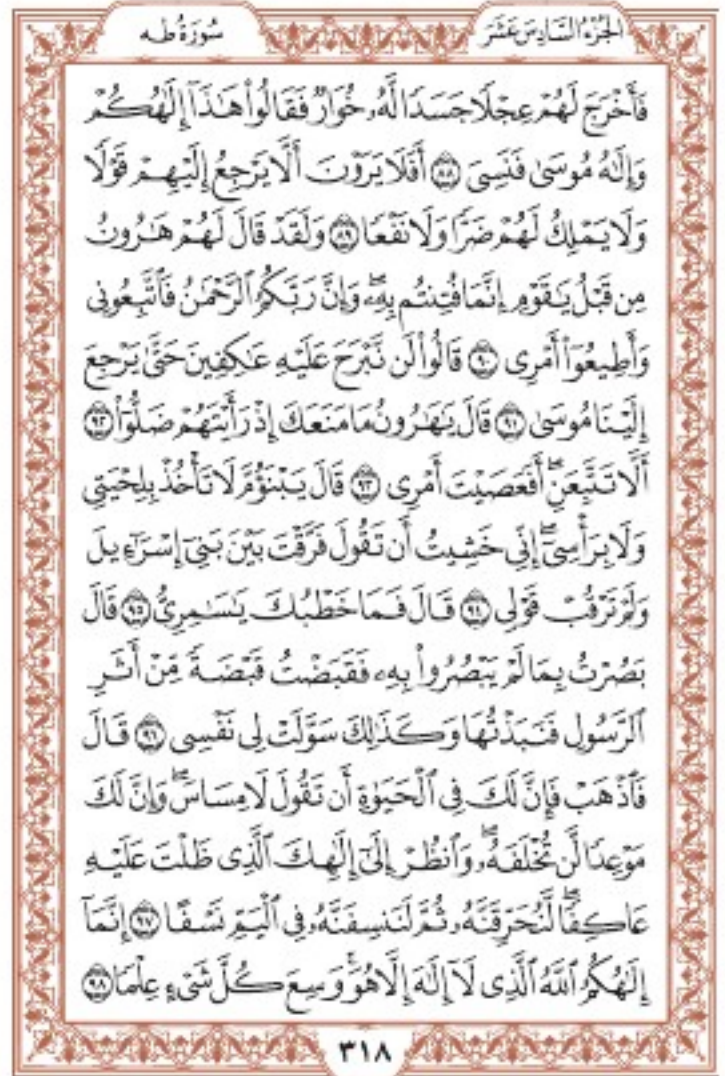 الجُزْءُ السَّادِسَ عَشَرَ
سُورَةُ طه
فَأَخْرَجَ لَهُمْ عِجْلًا جَسَدًا لَّهُۥ خُوَارٌ فَقَالُوا۟ هَـٰذَآ إِلَـٰهُكُمْ
وَإِلَـٰهُ مُوسَىٰ فَنَسِىَ ٨٨ أَفَلَا يَرَوْنَ أَلَّا يَرْجِعُ إِلَيْهِمْ قَوْلًا
وَلَا يَمْلِكُ لَهُمْ ضَرًّا وَلَا نَفْعًا ٨٩ وَلَقَدْ قَالَ لَهُمْ هَـٰرُونُ
مِن قَبْلُ يَـٰقَوْمِ إِنَّمَا فُتِنتُم بِهِۦۖ وَإِنَّ رَبَّكُمُ ٱلرَّحْمَـٰنُ فَٱتَّبِعُونِى
وَأَطِيعُوٓا۟ أَمْرِى ٩٠ قَالُوا۟ لَن نَّبْرَحَ عَلَيْهِ عَـٰكِفِينَ حَتَّىٰ يَرْجِعَ
إِلَيْنَا مُوسَىٰ ٩١ قَالَ يَـٰهَـٰرُونُ مَا مَنَعَكَ إِذْ رَأَيْتَهُمْ ضَلُّوٓا۟ ٩٢
أَلَّا تَتَّبِعَنِۖ أَفَعَصَيْتَ أَمْرِى ٩٣ قَالَ يَبْنَؤُمَّ لَا تَأْخُذْ بِلِحْيَتِى
وَلَا بِرَأْسِىٓۖ إِنِّى خَشِيتُ أَن تَقُولَ فَرَّقْتَ بَيْنَ بَنِىٓ إِسْرَٰٓءِيلَ
وَلَمْ تَرْقُبْ قَوْلِى ٩٤ قَالَ فَمَا خَطْبُكَ يَـٰسَـٰمِرِىُّ ٩٥ قَالَ
بَصُرْتُ بِمَا لَمْ يَبْصُرُوا۟ بِهِۦ فَقَبَضْتُ قَبْضَةً مِّنْ أَثَرِ
ٱلرَّسُولِ فَنَبَذْتُهَا وَكَذَٰلِكَ سَوَّلَتْ لِى نَفْسِى ٩٦ قَالَ
فَٱذْهَبْ فَإِنَّ لَكَ فِى ٱلْحَيَوٰةِ أَن تَقُولَ لَا مِسَاسَۖ وَإِنَّ لَكَ
مَوْعِدًا لَّن تُخْلَفَهُۥۖ وَٱنظُرْ إِلَىٰٓ إِلَـٰهِكَ ٱلَّذِى ظَلْتَ عَلَيْهِ
عَاكِفًاۖ لَّنُحَرِّقَنَّهُۥ ثُمَّ لَنَنسِفَنَّهُۥ فِى ٱلْيَمِّ نَسْفًا ٩٧ إِنَّمَآ
إِلَـٰهُكُمُ ٱللَّهُ ٱلَّذِى لَآ إِلَـٰهَ إِلَّا هُوَۚ وَسِعَ كُلَّ شَىْءٍ عِلْمًا ٩٨
٣١٨